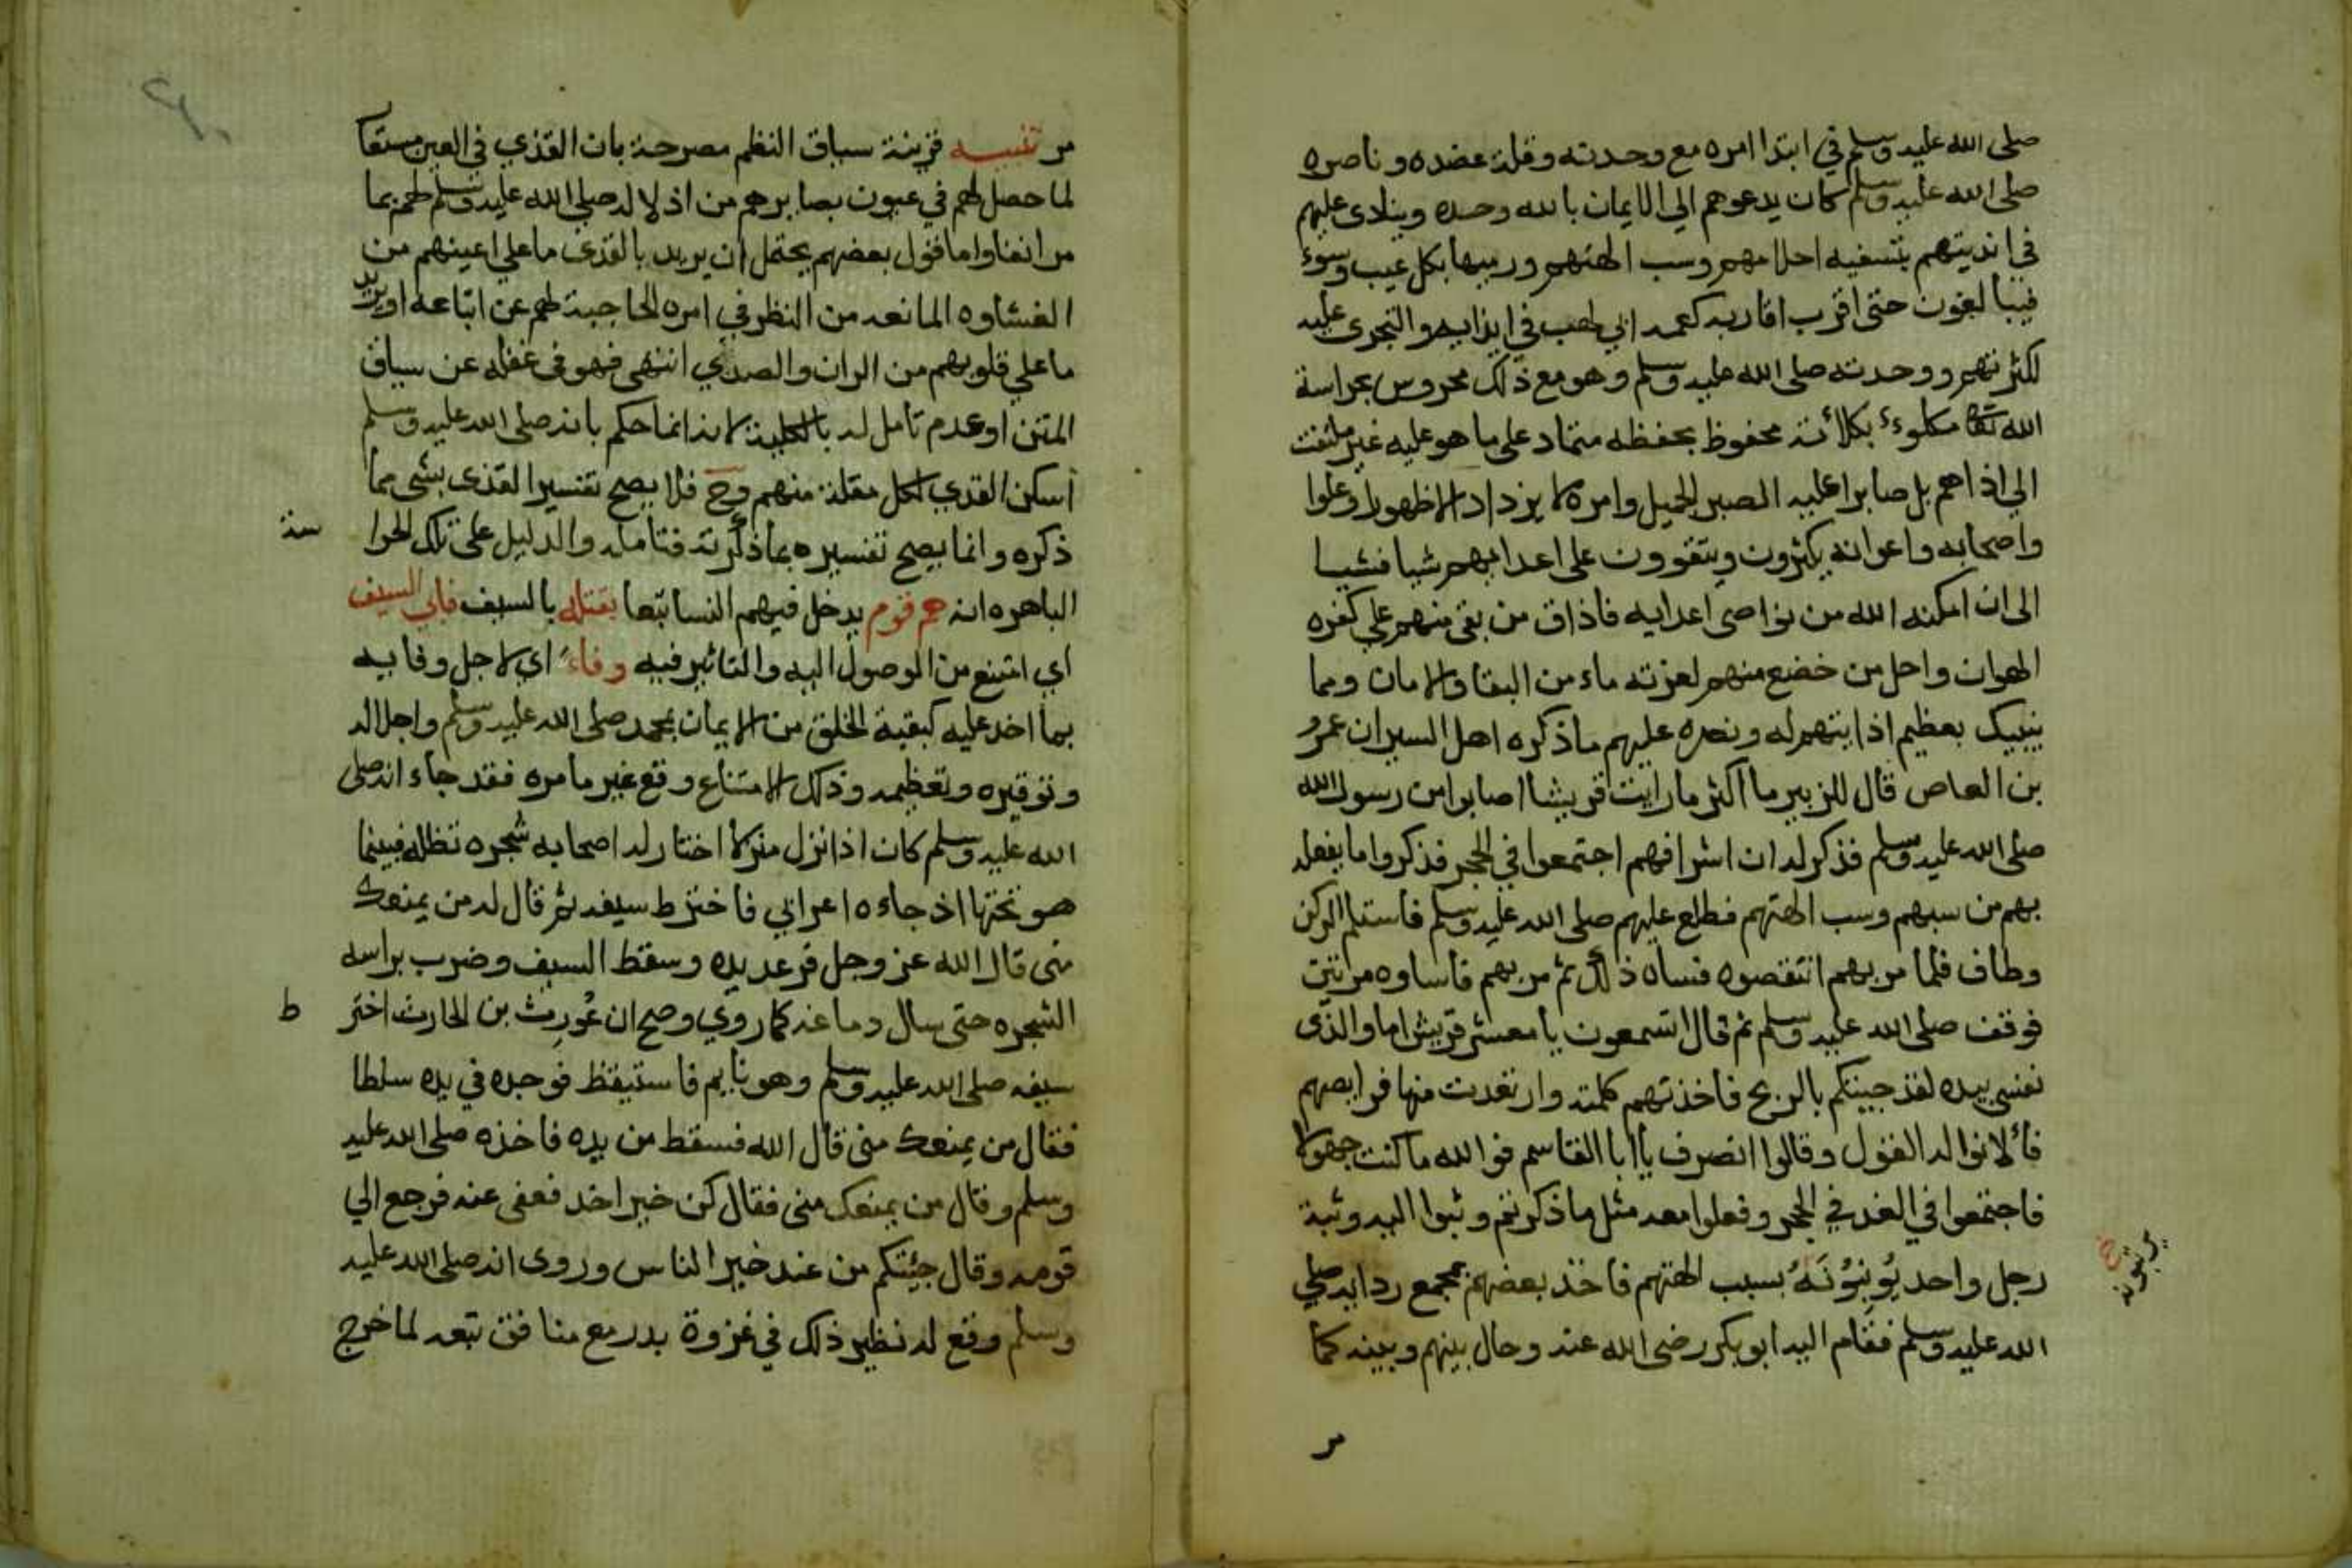 صلى الله عليه وسلم في ابتدا امره مع وحدته وقلة عضده وناصره
صلى الله عليه وسلم كان يدعوهم الي الايمان بالله وحده وينادى عليهم
في انديتهم بتسفيه احلامهم وسب الهتهم ورميها بكل عيب وسوء
فيبالغون حتى اقرب اقاربه كعمه ابي لهب في ايذايه والتجرى عليه
لكثرتهم ووحدته صلى الله عليه وسلم وهو مع ذلك محروس بحراسة
الله تعا مكلوء بكلأته محفوظ بحفظه متماد على ما هو عليه غير ملتفت
الي اذاهم بل صابرا عليه الصبر الجميل وامره لا يزداد الا ظهورا وعلوا
واصحابه واعوانه يكثرون ويتقوون على اعدايهم شيا فشيا
الى ان امكنه الله من نواصى اعدايه فاذاق من بقى منهم علي كفره
الهوان واحل من خضع منهم لعزته ماء من البقا والامان ومما
ينبيك بعظيم اذايتهم له ونصره عليهم ما ذكره اهل السير ان عمرو
بن العاص قال للزبير ما اكثر ما رايت قريشا اصابوا من رسول الله
صلى الله عليه وسلم فذكر له ان اشرافهم اجتمعوا في الحجر فذكروا ما يفعله
بهم من سبهم وسب الهتهم فطلع عليهم صلى الله عليه وسلم فاستلم الركن
وطاف فلما مر بهم انتقصوه فساه ذلك ثم مر بهم فاساوه مرتين
فوقف صلى الله عليه وسلم ثم قال اتسمعون يا معشر قريش اما والذى
نفسى بيده لقد جيتكم بالربح فاخذتهم كلمته وارتعدت منها فرايصهم
فألانوا له القول وقالوا انصرف يا ابا القاسم فوالله ما كنت جهولا
فاجتمعوا في الغد في الحجر وفعلوا معه مثل ما ذكر ثم وثبوا اليه وثبة
رجل واحد يُوبنُونَهُ بسبب الهتهم فاخذ بعضهم بمجمع ردايه صلي
الله عليه وسلم فقام اليه ابو بكر رضى الله عنه وحال بينهم وبينه كما
مر
خ
مر تنبيه قرينة سباق النظم مصرحة بان القذي في العين مستعا
لما حصل لهم في عيون بصايرهم من اذلاله صلي الله عليه وسلم لهم بما
مر انفا واما قول بعضهم يحتمل ان يريد بالقذى ما على اعينهم من
الغشاوه المانعه من النظر في امره الحاجبة لهم عن اتباعه او يريد
ما علي قلوبهم من الران والصدي انتهى فهو في غفله عن سياق
المتن او عدم تامل له بالكلية لانه انما حكم بانه صلى الله عليه وسلم
اسكن القذي لكل مقلة منهم وح فلا يصح تفسير القذى بشى مما
ذكره وانما يصح تفسيره بما ذكرته فتامله والدليل على تلك الحرا
سة
الباهره انه هم قوم يدخل فيهم النسا تبعا بقتله بالسيف فابي السيف
اي امتنع من الوصول اليه والتاثير فيه وفاء اي لاجل وفايه
بما اخذ عليه كبقية الخلق من الايمان بمحمد صلى الله عليه وسلم واجلاله
وتوقيره وتعظيمه وذلك الامتناع وقع غير ما مره فقد جاء انه صلى
الله عليه وسلم كان اذا نزل منزلا اختار له اصحابه شجره تظله فبينما
هو تحتها اذ جاءه اعرابي فاخترط سيفه ثم قال له من يمنعك
منى قال الله عز وجل فرعد يده وسقط السيف وضرب براسه
الشجره حتى سال دماغه كما روي وصح ان غُورِث بن الحارث اختر
ط
سيفه صلى الله عليه وسلم وهو نايم فاستيقظ فوجده في يده سلطا
فقال من يمنعك منى قال الله فسقط من يده فاخذه صلى الله عليه
وسلم وقال من يمنعك منى فقال كن خير اخذ فعفى عنه فرجع الي
قومه وقال جئتكم من عند خير الناس وروى انه صلى الله عليه
وسلم وقع له نظير ذلك في غزوة بدر مع منافق تبعه لما خرج